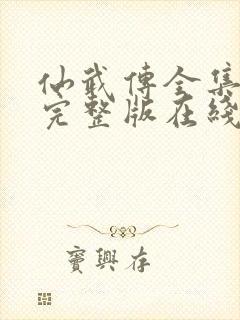 仙武傳全集
完整版在綫
竇興存